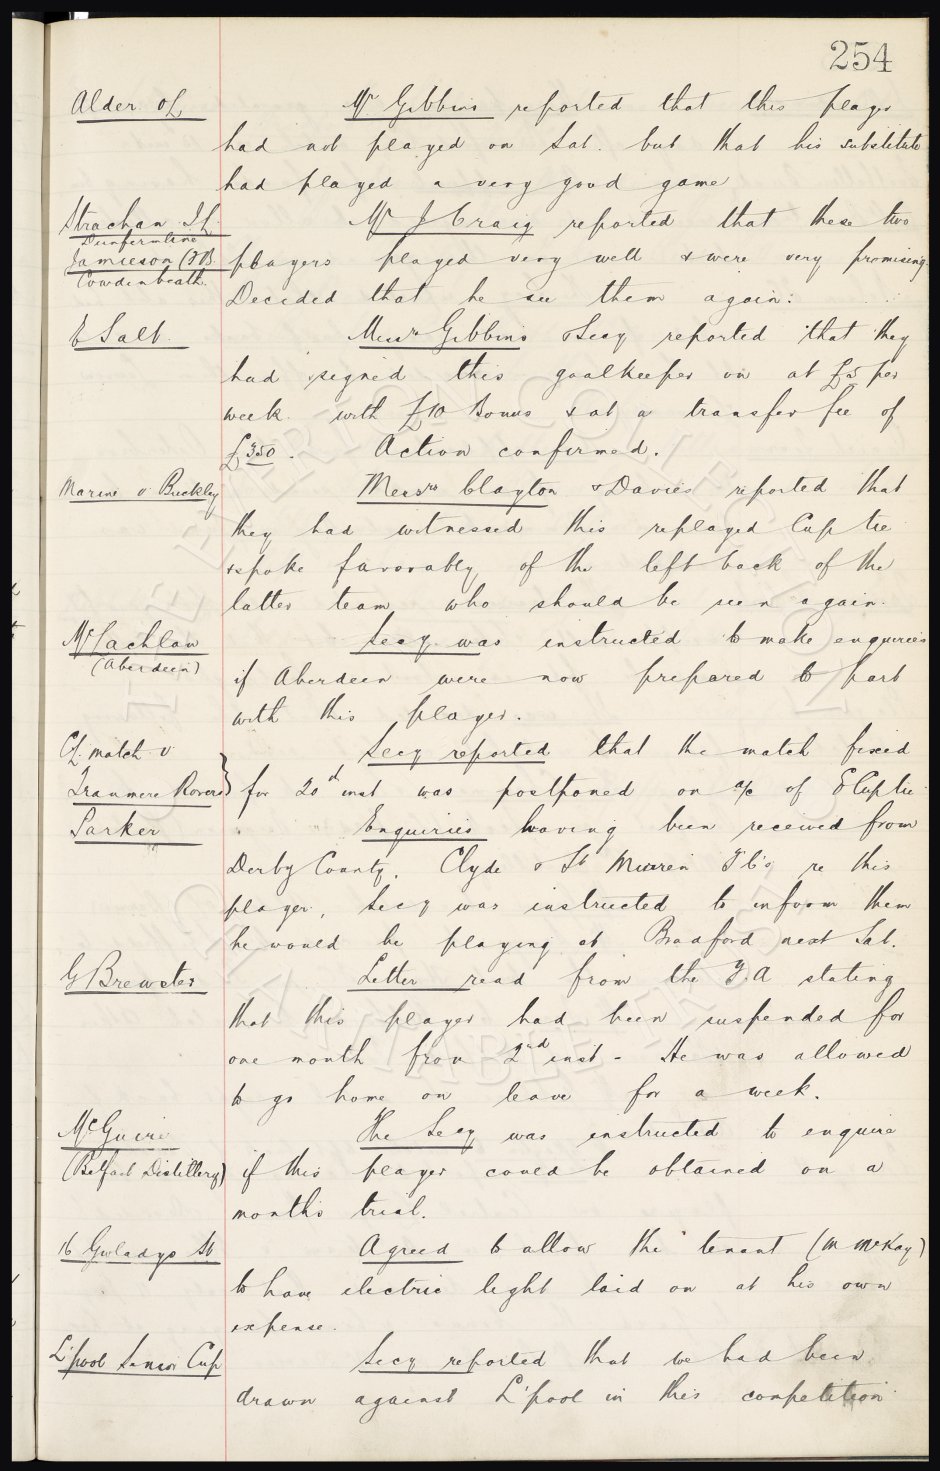 254
Alder. OL Mr Gibbins reported that this player
had not played on Sat. but that his substitute
had played a very good game
Strachan I.L. Mr J Craig reported that these two
Dunfermline
Jamieson (RB players played very well & were very promising.
Cowdenbeath.
Decided that he see them again.
E Salt. Messrs Gibbins & Secy reported that they
had signed this goalkeeper on at £5 per
week with £10 Bonus & at a transfer fee of
£350. Action confirmed.
Marine v Buckley Messrs Clayton & Davies reported that
they had witnessed this replayed Cup tie
& spoke favorably of the left back of the
latter team who should be seen again.
McLachlan Secy was instructed to make enquiries
(Aberdeen)
if Aberdeen were now prepared to part
with this player.
CL match v Secy reported that the match fixed
Tranmere Rovers } for 20th inst was postponed on a/c of E Cup tie
Parker Enquiries having been received from
Derby County, Clyde & St Mirren F.C's re this
player, Secy was instructed to inform them
he would be playing at Bradford next Sat.
G Brewster Letter read from the F.A stating
that this player had been suspended for
one month from 2nd inst - He was allowed
to go home on leave for a week.
McGuire The Secy was instructed to enquire
(Belfast Distillery) if this player could be obtained on a
month's trial.
16 Gwladys St Agreed to allow the tenant (M McKay)
to have electric light laid on at his own
expense.
L'pool Senior Cup Secy reported that we had been
drawn against L'pool in this competition
THE EVERTON COLLECTION
CHARITABLE TRUST